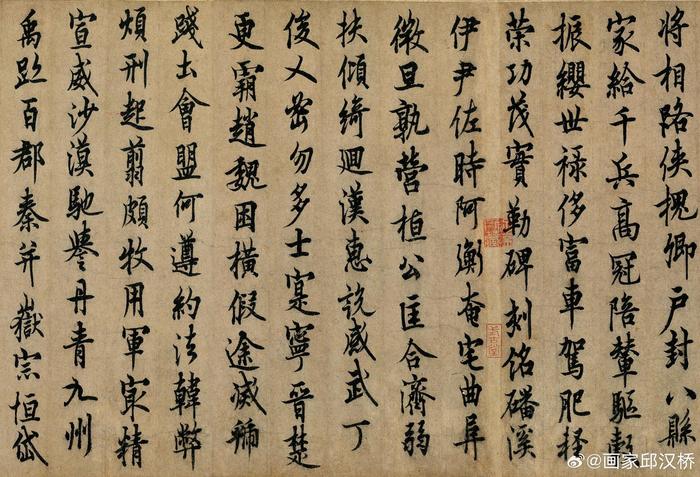 将相路侠槐卿户封八縣
家給千兵高冠陪輦驅轂
振纓世禄侈富車駕肥輕
策功茂實勒碑刻銘磻溪
伊尹佐時阿衡奄宅曲阜
微旦孰營桓公匡合濟弱
扶傾綺迴漢惠説感武丁
俊乂密勿多士寔寧晉楚
更霸趙魏困橫假途滅虢
踐土會盟何遵約法韓弊
煩刑起翦頗牧用軍寂精
宣威沙漠馳譽丹青九州
禹跡百郡秦并嶽宗恒岱
@画家邱汉桥